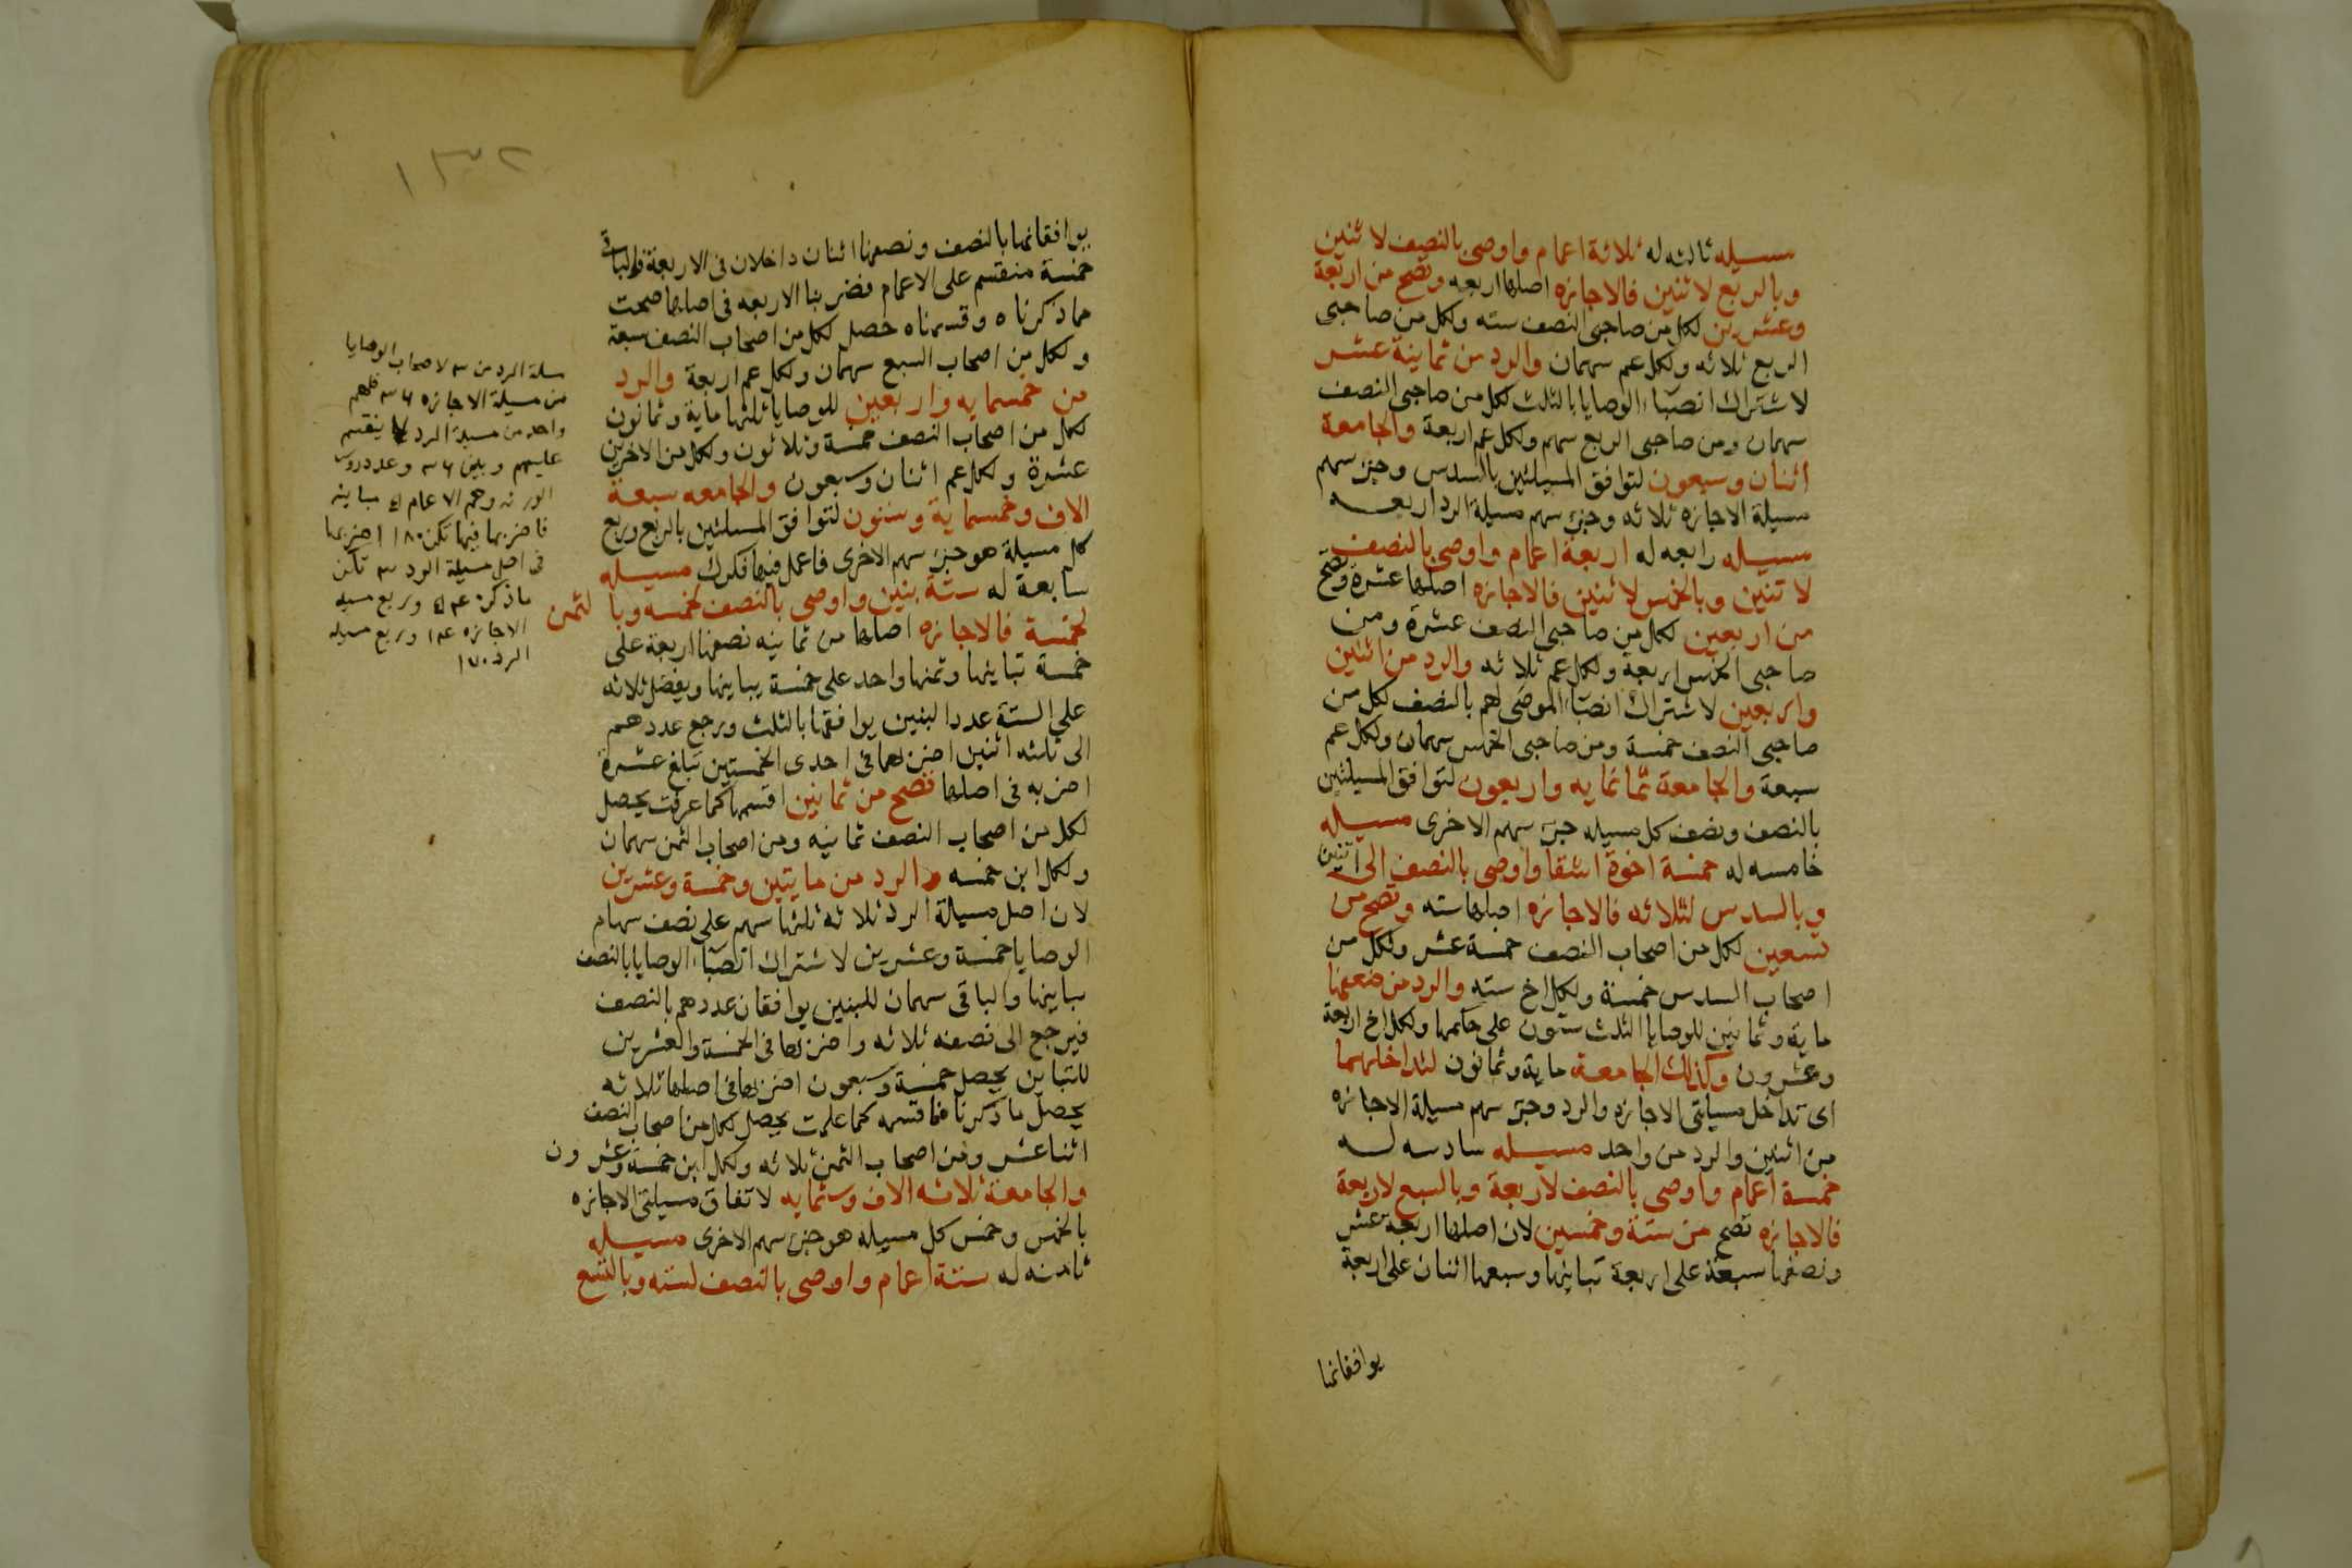 مسيله ثالثه له ثلاثة اعمام واوصى بالنصف لاثنين
وبالربع لاثنين فالاجازه اصلها اربعه وتصح من اربعة
وعشرين لكل من صاحبى النصف سته ولكل من صاحبى
الربع ثلاثه ولكل عم سهمان والرد من ثمانية عشر
لاشتراك انصباء الوصايا بالثلث لكل من صاحبى النصف
سهمان ومن صاحبى الربع سهم ولكل عم اربعة والجامعة
اثنان وسبعون لتوافق المسيلتين بالسدس وجزء سهم
مسيلة الاجازه ثلاثه وجزء سهم مسيلة الرد اربعه
مسيله رابعه له اربعة اعمام واوصى بالنصف
لاثنين وبالخمس لاثنين فالاجازه اصلها عشرة وتصح
من اربعين لكل من صاحبى النصف عشرة ومن
صاحبى الخمس اربعة ولكل عم ثلاثه والرد من اثنين
واربعين لاشتراك انصباء الموصى لهم بالنصف لكل من
صاحبى النصف خمسة ومن صاحبى الخمس سهمان ولكل عم
سبعة والجامعة ثمانمايه واربعون لتوافق المسيلتين
بالنصف ونصف كل مسيله جزء سهم الاخرى مسيله
خامسه له خمسة اخوة اشقا واوصى بالنصف الى اثنين
وبالسدس لثلاثه فالاجازه اصلها سته وتصح من
تسعين لكل من اصحاب النصف خمسة عشر ولكل من
اصحاب السدس خمسة ولكل اخ سته والرد من ضعفها
ماية وثمانين للوصايا الثلث ستون على حكمها ولكل اخ اربعة
وعشرون وكذلك الجامعة ماية وثمانون لتداخلهما
اى تداخل مسيلتى الاجازه والرد وجزء سهم مسيلة الاجازه
من اثنين والرد من واحد مسيله سادسه له
خمسة اعمام واوصى بالنصف لاربعة وبالسبع لاربعة
فالاجازه تصح من ستة وخمسين لان اصلها اربعة عشر
ونصفها سبعة على اربعة تباينها وسبعها اثنان على اربعة
يوافقانها
١٣٢
يوافقانها بالنصف ونصفها اثنان داخلان فى الاربعة والباقى
خمسة منقسم على الاعمام فضربنا الاربعه فى اصلها صحت
مما ذكرناه وقسمناه حصل لكل من اصحاب النصف سبعة
ولكل من اصحاب السبع سهمان ولكل عم اربعة والرد
من خمسمايه واربعين للوصايا ثلثها ماية وثمانون
لكل من اصحاب النصف خمسة وثلاثون ولكل من الاخرين
عشرة ولكل عم اثنان وسبعون والجامعه سبعة
الاف وخمسماية وستون لتوافق المسلتين بالربع وربع
كل مسيلة هو جزء سهم الاخرى فاعمل فيها فكرك مسيله
سابعة له ستة بنين واوصى بالنصف لخمسه وبالثمن
لخمسة فالاجازه اصلها من ثمانيه نصفها اربعة على
خمسة تباينها وثمنها واحد على خمسة يباينها ويفضل ثلاثه
على الستة عدد البنين يوافقها بالثلث ويرجع عددهم
الى ثلثه اثنين اضربهما فى احدى الخمستين تبلغ عشرة
اضربه فى اصلها فتصح من ثمانين اقسمها كما عرفت يحصل
لكل من اصحاب النصف ثمانيه ومن اصحاب الثمن سهمان
ولكل ابن خمسه والرد من مايتين وخمسة وعشرين
لان اصل مسيلة الرد ثلاثه ثلثها سهم على نصف سهام
الوصايا خمسة وعشرين لاشتراك انصباء الوصايا بالنصف
يباينها والباقى سهمان للبنين يوافقان عددهم بالنصف
فيرجع الى نصفه ثلاثه واضربها فى الخمسة والعشرين
للتباين يحصل خمسة وسبعون اضربها فى اصلها ثلاثه
يحصل ما ذكرنا فاقسمه كما علمت يحصل لكل من اصحاب النصف
اثنا عشر ومن اصحاب الثمن ثلاثه ولكل ابن خمسة وعشرون
والجامعة ثلاثه الاف وستمايه لاتفاق مسيلتى الاجازه
بالخمس وخمس كل مسيله هو جزء سهم الاخرى مسيله
ثامنه له ستة اعمام واوصى بالنصف لسته وبالتسع
مسلة الرد من ٣ لاصحاب الوصايا
من مسيلة الاجازه ٣٦ فلهم
واحد من مسيلة الرد لا ينقسم
عليهم وبين ٣٦ وعدد روس
الورثه وهم الاعمام ٥ مباينه
فاضربها فيها تكن ١٨٠ اضربها
فى اصل مسيلة الرد ٣ تكن
ما ذكر ٥٤٠ وربع مسيله
الاجازه ١٤ وربع مسيله
الرد